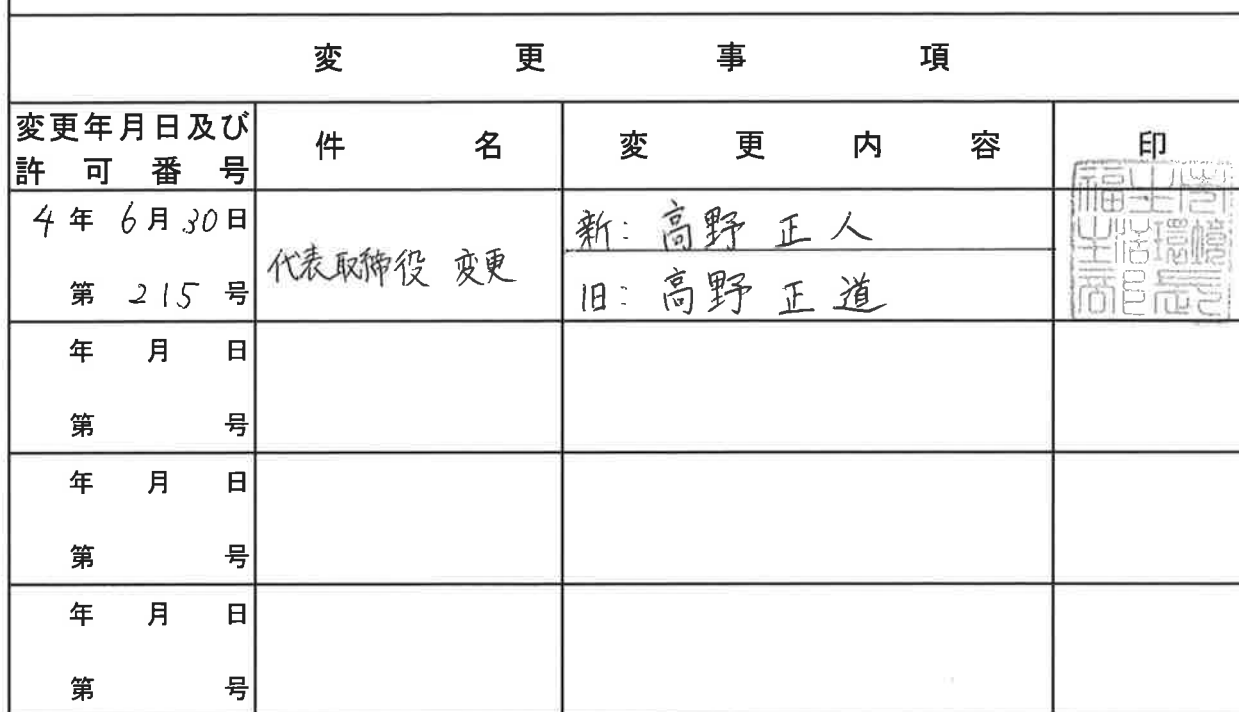 変更事項
変更年月日及び
許可番号
件名
変更内容
印
4年6月30日
第215号
代表取締役 変更
新: 高野 正人
旧: 高野 正道
年 月 日
第 号
年 月 日
第 号
年 月 日
第 号